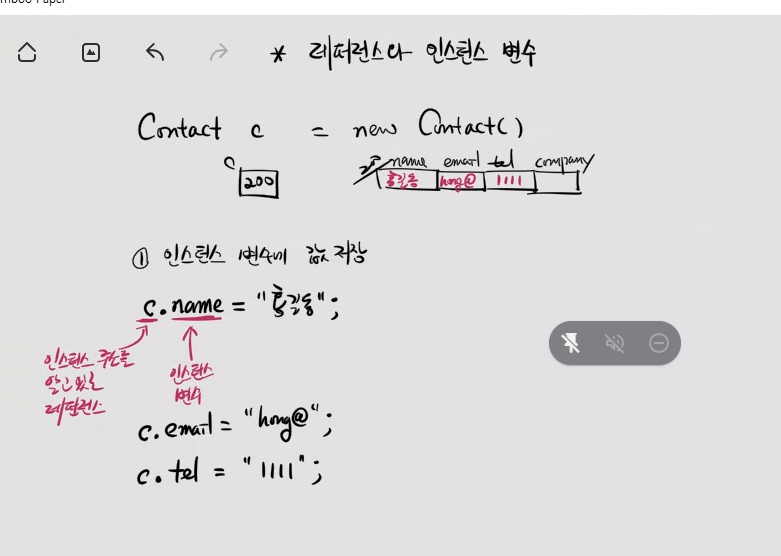 * 레퍼런스와 인스턴스 변수
Contact c = new Contact()
c
200
name email tel company
홍길동 hong@ 1111
① 인스턴스 변수에 값 저장
c.name = "홍길동";
인스턴스 주소를
알고 있는
레퍼런스
인스턴스
변수
c.email = "hong@";
c.tel = "1111";